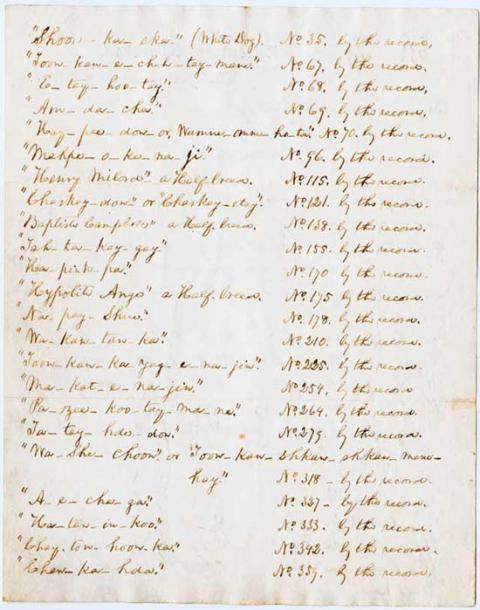 "Shoon-ka-ska." (White Dog). No 35. by the record.
"Toon-kan-e-chah-tay-mane." No 67. by the record.
"E-tay-hoo-tay." No 68. by the record.
"Am-da-cha." No 69. by the record.
"Hay-pee-don or, Wamne-omne-ho-ta." No 70. by the record.
"Mahpe-o-ke-na-ji." No 96. by the record.
"Henry Milord" a Halfbreed. No 115. by the record.
"Chaskay-don" or "Chaskay-etay." No 121. by the record.
"Baptiste Campbell" a Halfbreed. No 138. by the record.
"Tah-ta-kay-gay." No 155. by the record.
"Ha-pink-pa." No 170 by the record.
"Hypolite Ange" a Halfbreed. No 175 by the record.
"Na-pay-Shue." No 178. by the record.
"Wa-kan-tan-ka." No 210. by the record.
"Toon-kan-ka-yag-e-na-jin." No 225. by the record.
"Ma-kat-e-na-jin." No 254. by the record
"Pa-zee-koo-tay-ma-ne." No 264. by the record.
"Ta-tay-hde-don." No 279. by the record.
"Wa-She-choon," or "Toon-kan-shkan-shkan-mene-
hay." No 318 - by the record.
"A-e-cha-ga." No 327 - by the record.
"Ha-tan-in-koo." No 333. by the record.
"Chay-ton-hoon-ka." No 342. by the record.
"Chan-ka-hda." No 359. by the record.